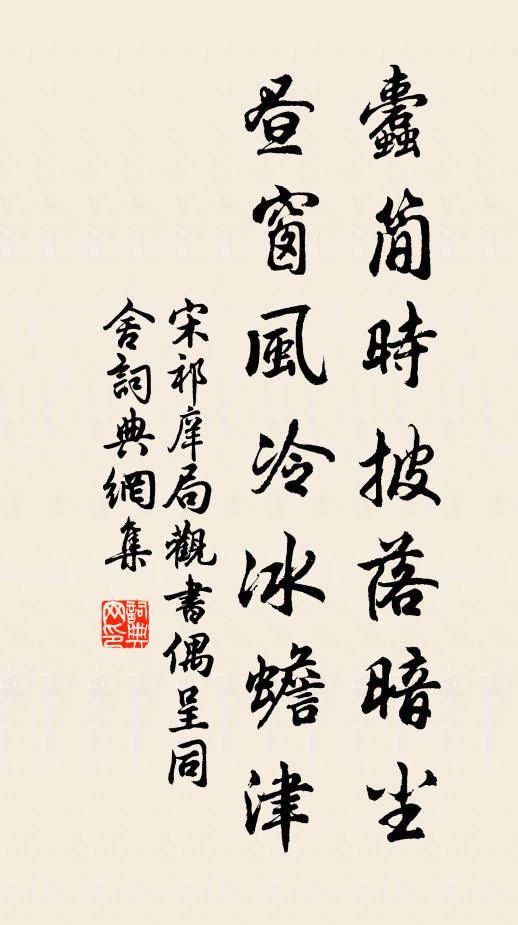 蠹简時披落暗尘
昼窗風冷冰蟾津
宋祁庠局觀書偶呈同
舍詞典網集
詞典网印